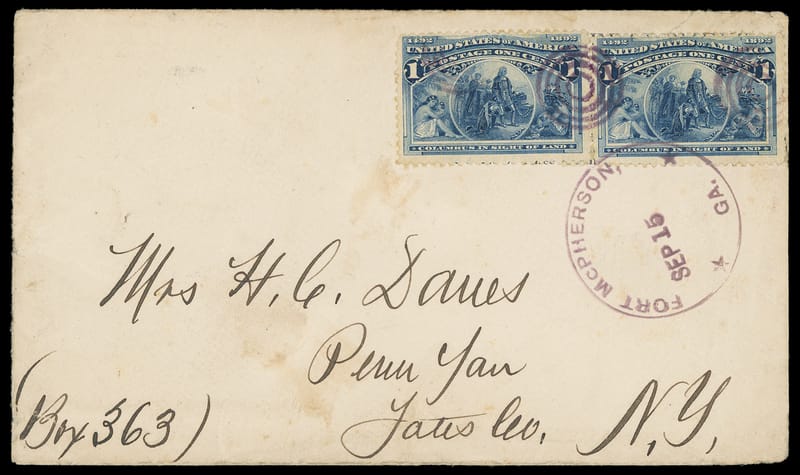 1492 1892
UNITED STATES OF AMERICA
POSTAGE ONE CENT
1 1
COLUMBUS IN SIGHT OF LAND
1492 1892
UNITED STATES OF AMERICA
POSTAGE ONE CENT
1 1
COLUMBUS IN SIGHT OF LAND
FORT MCPHERSON, GA.
SEP 15
Mrs H. C. Danes
Penn Yan
Yates Co. N.Y.
(Box 363)